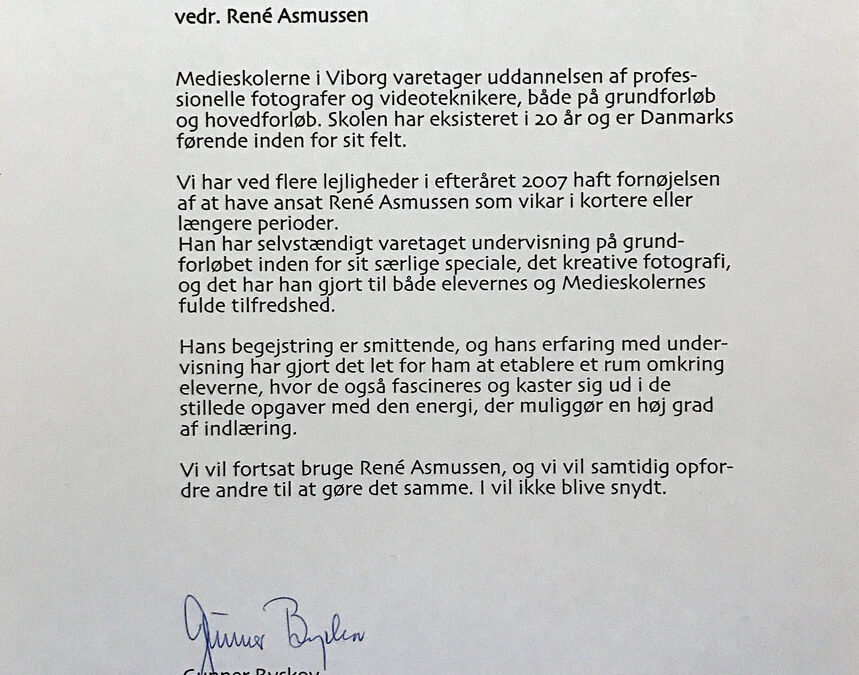 vedr. René Asmussen
Medieskolerne i Viborg varetager uddannelsen af profes-
sionelle fotografer og videoteknikere, både på grundforløb
og hovedforløb. Skolen har eksisteret i 20 år og er Danmarks
førende inden for sit felt.
Vi har ved flere lejligheder i efteråret 2007 haft fornøjelsen
af at have ansat René Asmussen som vikar i kortere eller
længere perioder.
Han har selvstændigt varetaget undervisning på grund-
forløbet inden for sit særlige speciale, det kreative fotografi,
og det har han gjort til både elevernes og Medieskolernes
fulde tilfredshed.
Hans begejstring er smittende, og hans erfaring med under-
visning har gjort det let for ham at etablere et rum omkring
eleverne, hvor de også fascineres og kaster sig ud i de
stillede opgaver med den energi, der muliggør en høj grad
af indlæring.
Vi vil fortsat bruge René Asmussen, og vi vil samtidig opfor-
dre andre til at gøre det samme. I vil ikke blive snydt.
Gunner Byskov
Gunner Byskov